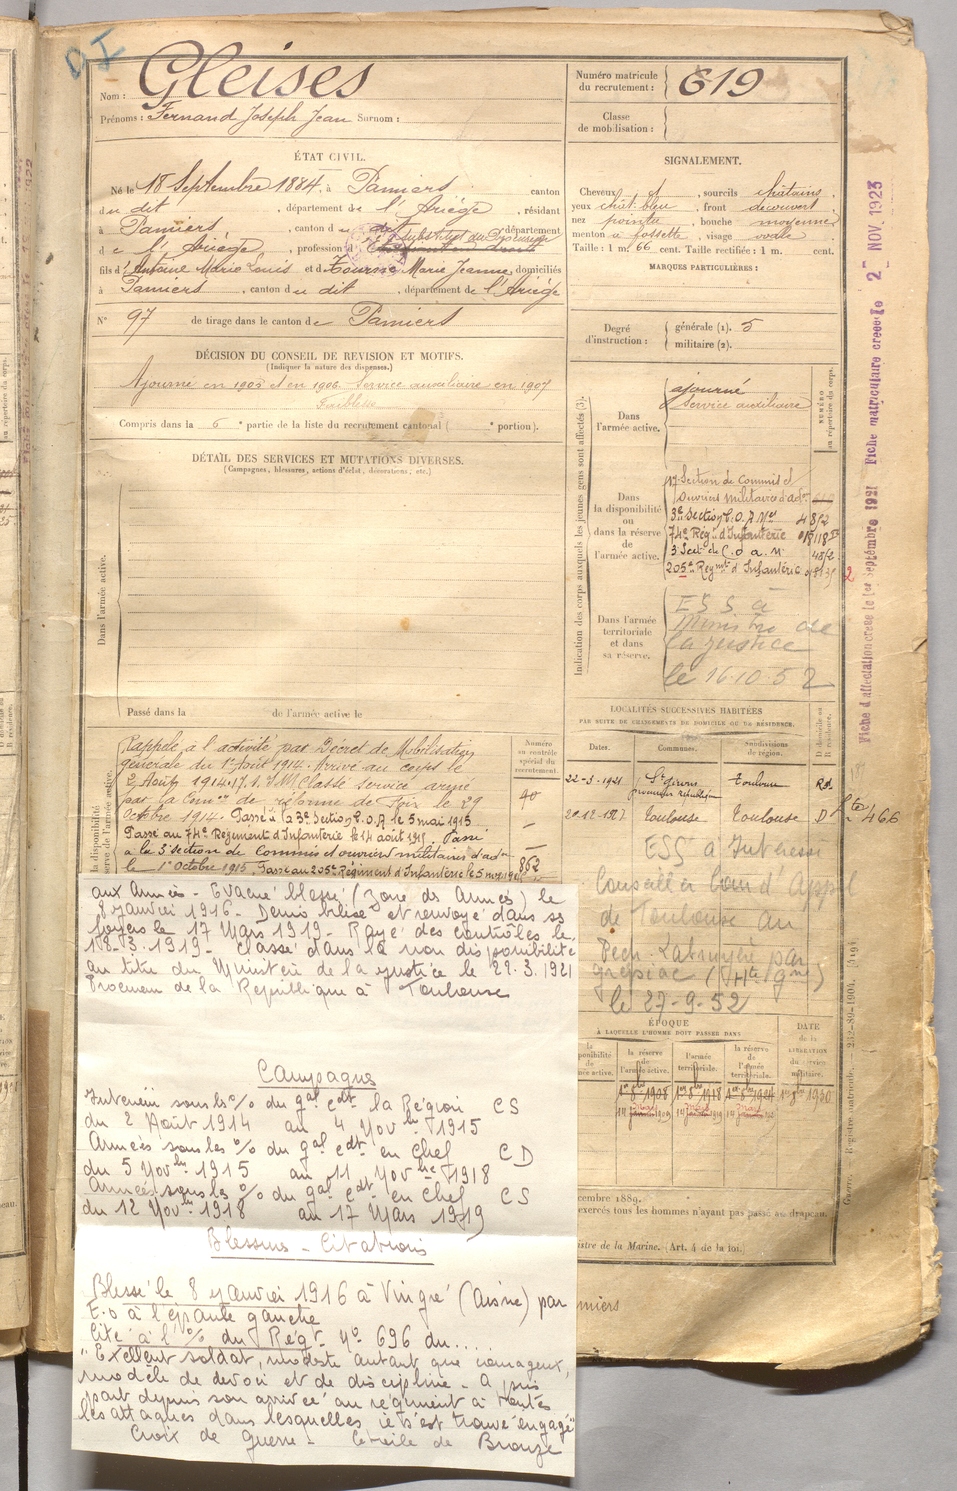 DI
Nom : Gleises
Prénoms : Fernand Joseph Jean Surnom :
Numéro matricule du recrutement : 619
Classe de mobilisation :
ÉTAT CIVIL.
Né le 18 Septembre 1884, à Pamiers canton
du dit, département de l'Ariège, résidant
à Pamiers, canton du dit département
de l'Ariège, profession d Substitut du Procureur
fils d'Antoine Marie Louis et d Marie Jeanne, domiciliés
à Pamiers, canton du dit, département de l'Ariège
N° 97 de tirage dans le canton de Pamiers
SIGNALEMENT.
Cheveux et, sourcils châtains,
yeux chât. bleu, front découvert,
nez pointu, bouche moyenne
menton à fossette, visage ovale
Taille : 1 m. 66 cent. Taille rectifiée : 1 m. cent.
MARQUES PARTICULIÈRES :
Degré d'instruction : générale (1). 5
militaire (2).
DÉCISION DU CONSEIL DE REVISION ET MOTIFS.
(Indiquer la nature des dispenses.)
Ajourné en 1905 et en 1906. Service auxiliaire en 1907
Faiblesse
Compris dans la 6e partie de la liste du recrutement cantonal ( e portion).
DÉTAIL DES SERVICES ET MUTATIONS DIVERSES.
(Campagnes, blessures, actions d'éclat, décorations, etc.)
Dans l'armée active.
Passé dans la de l'armée active le
Indication des corps auxquels les jeunes gens sont affectés (3).
NUMÉRO au répertoire du corps.
Dans l'armée active.
ajourné
Service auxiliaire
Dans la disponibilité ou dans la réserve de l'armée active.
17e Section de Commis et
Ouvriers militaires d'adon
3e Section C. O. A. Mre 4852
74e Régt d'Infanterie
3 Sect. de C. O. A. M. 4852
205e Regmt d'Infanterie
2
Dans l'armée territoriale et dans sa réserve.
ESS à
Ministre de
la justice
le 16.10.52
Fiche d'affectation créée le 1er Septembre 1921 Fiche matriculaire créée le 2 - NOV 1923
LOCALITÉS SUCCESSIVES HABITÉES
PAR SUITE DE CHANGEMENTS DE DOMICILE OU DE RÉSIDENCE.
Dates. Communes. Subdivisions de région. D domicile ou R résidence.
22-3-1921 St Girons Toulouse Rd.
procureur République
20.12.1927 Toulouse Toulouse D
466
ESS à Intéressé
Conseiller Cour d'Appel
de Toulouse au
Pech-Latruyère par
grépiac (Hte Gne)
le 27-9-52
Numéro au contrôle spécial du recrutement.
Rappelé à l'activité par Décret de Mobilisation
générale du 1er Août 1914. Arrivé au corps le
2 Août 1914. Classé service armé
par la Comon de réforme de Foix le 29
Octobre 1914. Passé à la 3e Section C.O.A. le 5 mai 1915
Passé au 74e Régiment d'Infanterie le 14 août 1915. Passé
à la 3 section de Commis et ouvriers militaires d'adon
le 1er Octobre 1915. Passé au 205e Régiment d'Infanterie le 5 nov. 1915
40
852
aux Armées - Evacué blessé (Zone des Armées) le
8 Janvier 1916 - Démobilisé et renvoyé dans ses
foyers le 17 Mars 1919 - Rayé des contrôles le
18-3-1919 - Classé dans la non disponibilité
au titre du Ministère de la justice le 22.3.1921
Procureur de la République à Toulouse
Campagnes
Intérieur sous les % du gal cdt la Région CS
du 2 Août 1914 au 4 Novbre 1915
Armées sous les % du gal cdt en chef CD
du 5 Novbre 1915 au 11 Novbre 1918
Armées sous les % du gal cdt en chef CS
du 12 Novbre 1918 au 17 Mars 1919
Blessures - Citations
Blessé le 8 Janvier 1916 à Vingré (Aisne) par
E.O à l'épaule gauche
Cité à l'% du Régt N° 696 du....
"Excellent soldat, modeste autant que courageux,
modèle de devoir et de discipline - A pris
part depuis son arrivée au régiment à toutes
les attaques dans lesquelles il s'est trouvé engagé"
Croix de guerre - Etoile de Bronze
ÉPOQUE
À LAQUELLE L'HOMME DOIT PASSER DANS
la réserve de l'armée active.
l'armée territoriale.
la réserve de l'armée territoriale.
DATE de la LIBÉRATION du service militaire.
1er 8bre 1908 1er 8bre 1918 1er 8bre 1924 1er 8bre 1930
cembre 1889.
exercés tous les hommes n'ayant pas passé au drapeau.
istre de la Marine. (Art. 4 de la loi.)
amiers